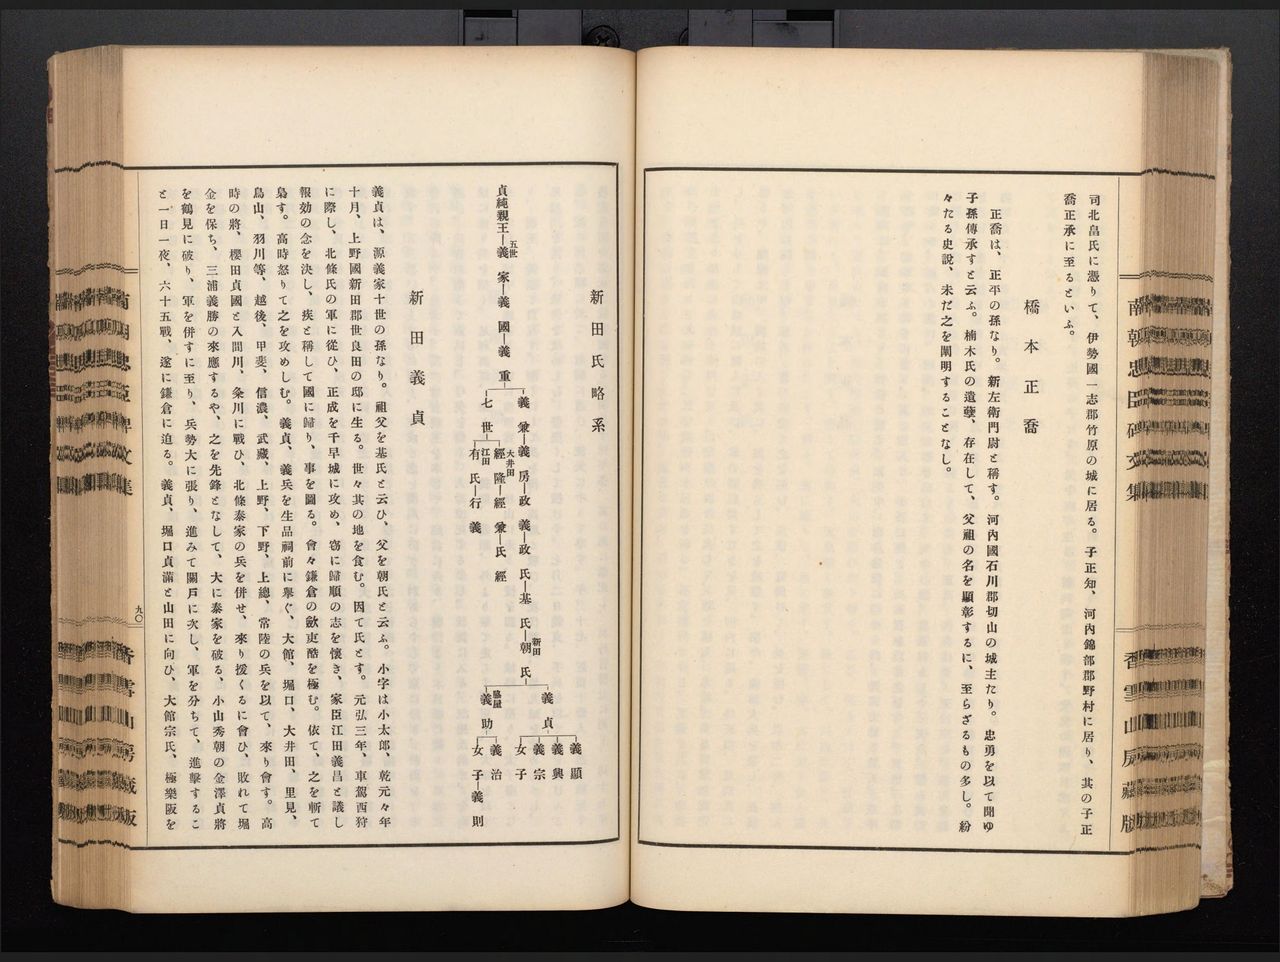 司北畠氏に憑りて、伊勢國一志郡竹原の城に居る。子正知、河內錦部郡野村に居り、其の子正
喬正承に至るといふ。
橋本正喬
正喬は、正平の孫なり。新左衞門尉と稱す。河內國石川郡切山の城主たり。忠勇を以て聞ゆ
子孫傳承すと云ふ。楠木氏の遺孽、存在して、父祖の名を顯彰するに、至らざるもの多し。紛
々たる史說、未だ之を闡明することなし。
南朝忠臣碑文集
香雪山房藏版
新田氏略系
貞純親王―五世義家―義國―義重
義兼―義房―政義―政氏―基氏―新田朝氏
七世
大井田經隆―經兼―氏經
江田有氏―行義
義貞
義顯
義興
義宗
女子
脇屋義助
義治
女子―義則
新田義貞
義貞は、源義家十世の孫なり。祖父を基氏と云ひ、父を朝氏と云ふ。小字は小太郎、乾元々年
十月、上野國新田郡世良田の邸に生る。世々其の地を食む。因て氏とす。元弘三年、車駕西狩
に際し、北條氏の軍に從ひ、正成を千早城に攻め、窃に歸順の志を懷き、家臣江田義昌と議し
報効の念を決し、疾と稱して國に歸り、事を圖る。會々鎌倉の歛吏酷を極む。依て、之を斬て
梟す。高時怒りて之を攻めしむ。義貞、義兵を生品祠前に擧ぐ、大館、堀口、大井田、里見、
鳥山、羽川等、越後、甲斐、信濃、武藏、上野、下野、上總、常陸の兵を以て、來り會す。高
時の將、櫻田貞國と入間川、粂川に戰ひ、北條泰家の兵を併せ、來り援くるに會ひ、敗れて堀
金を保ち、三浦義勝の來應するや、之を先鋒となして、大に泰家を破る、小山秀朝の金澤貞將
を鶴見に破り、軍を併すに至り、兵勢大に張り、進みて關戶に次し、軍を分ちて、進擊するこ
と一日一夜、六十五戰、遂に鎌倉に迫る。義貞、堀口貞滿と山田に向ひ、大館宗氏、極樂阪を
九〇
南朝忠臣碑文集
香雪山房藏版